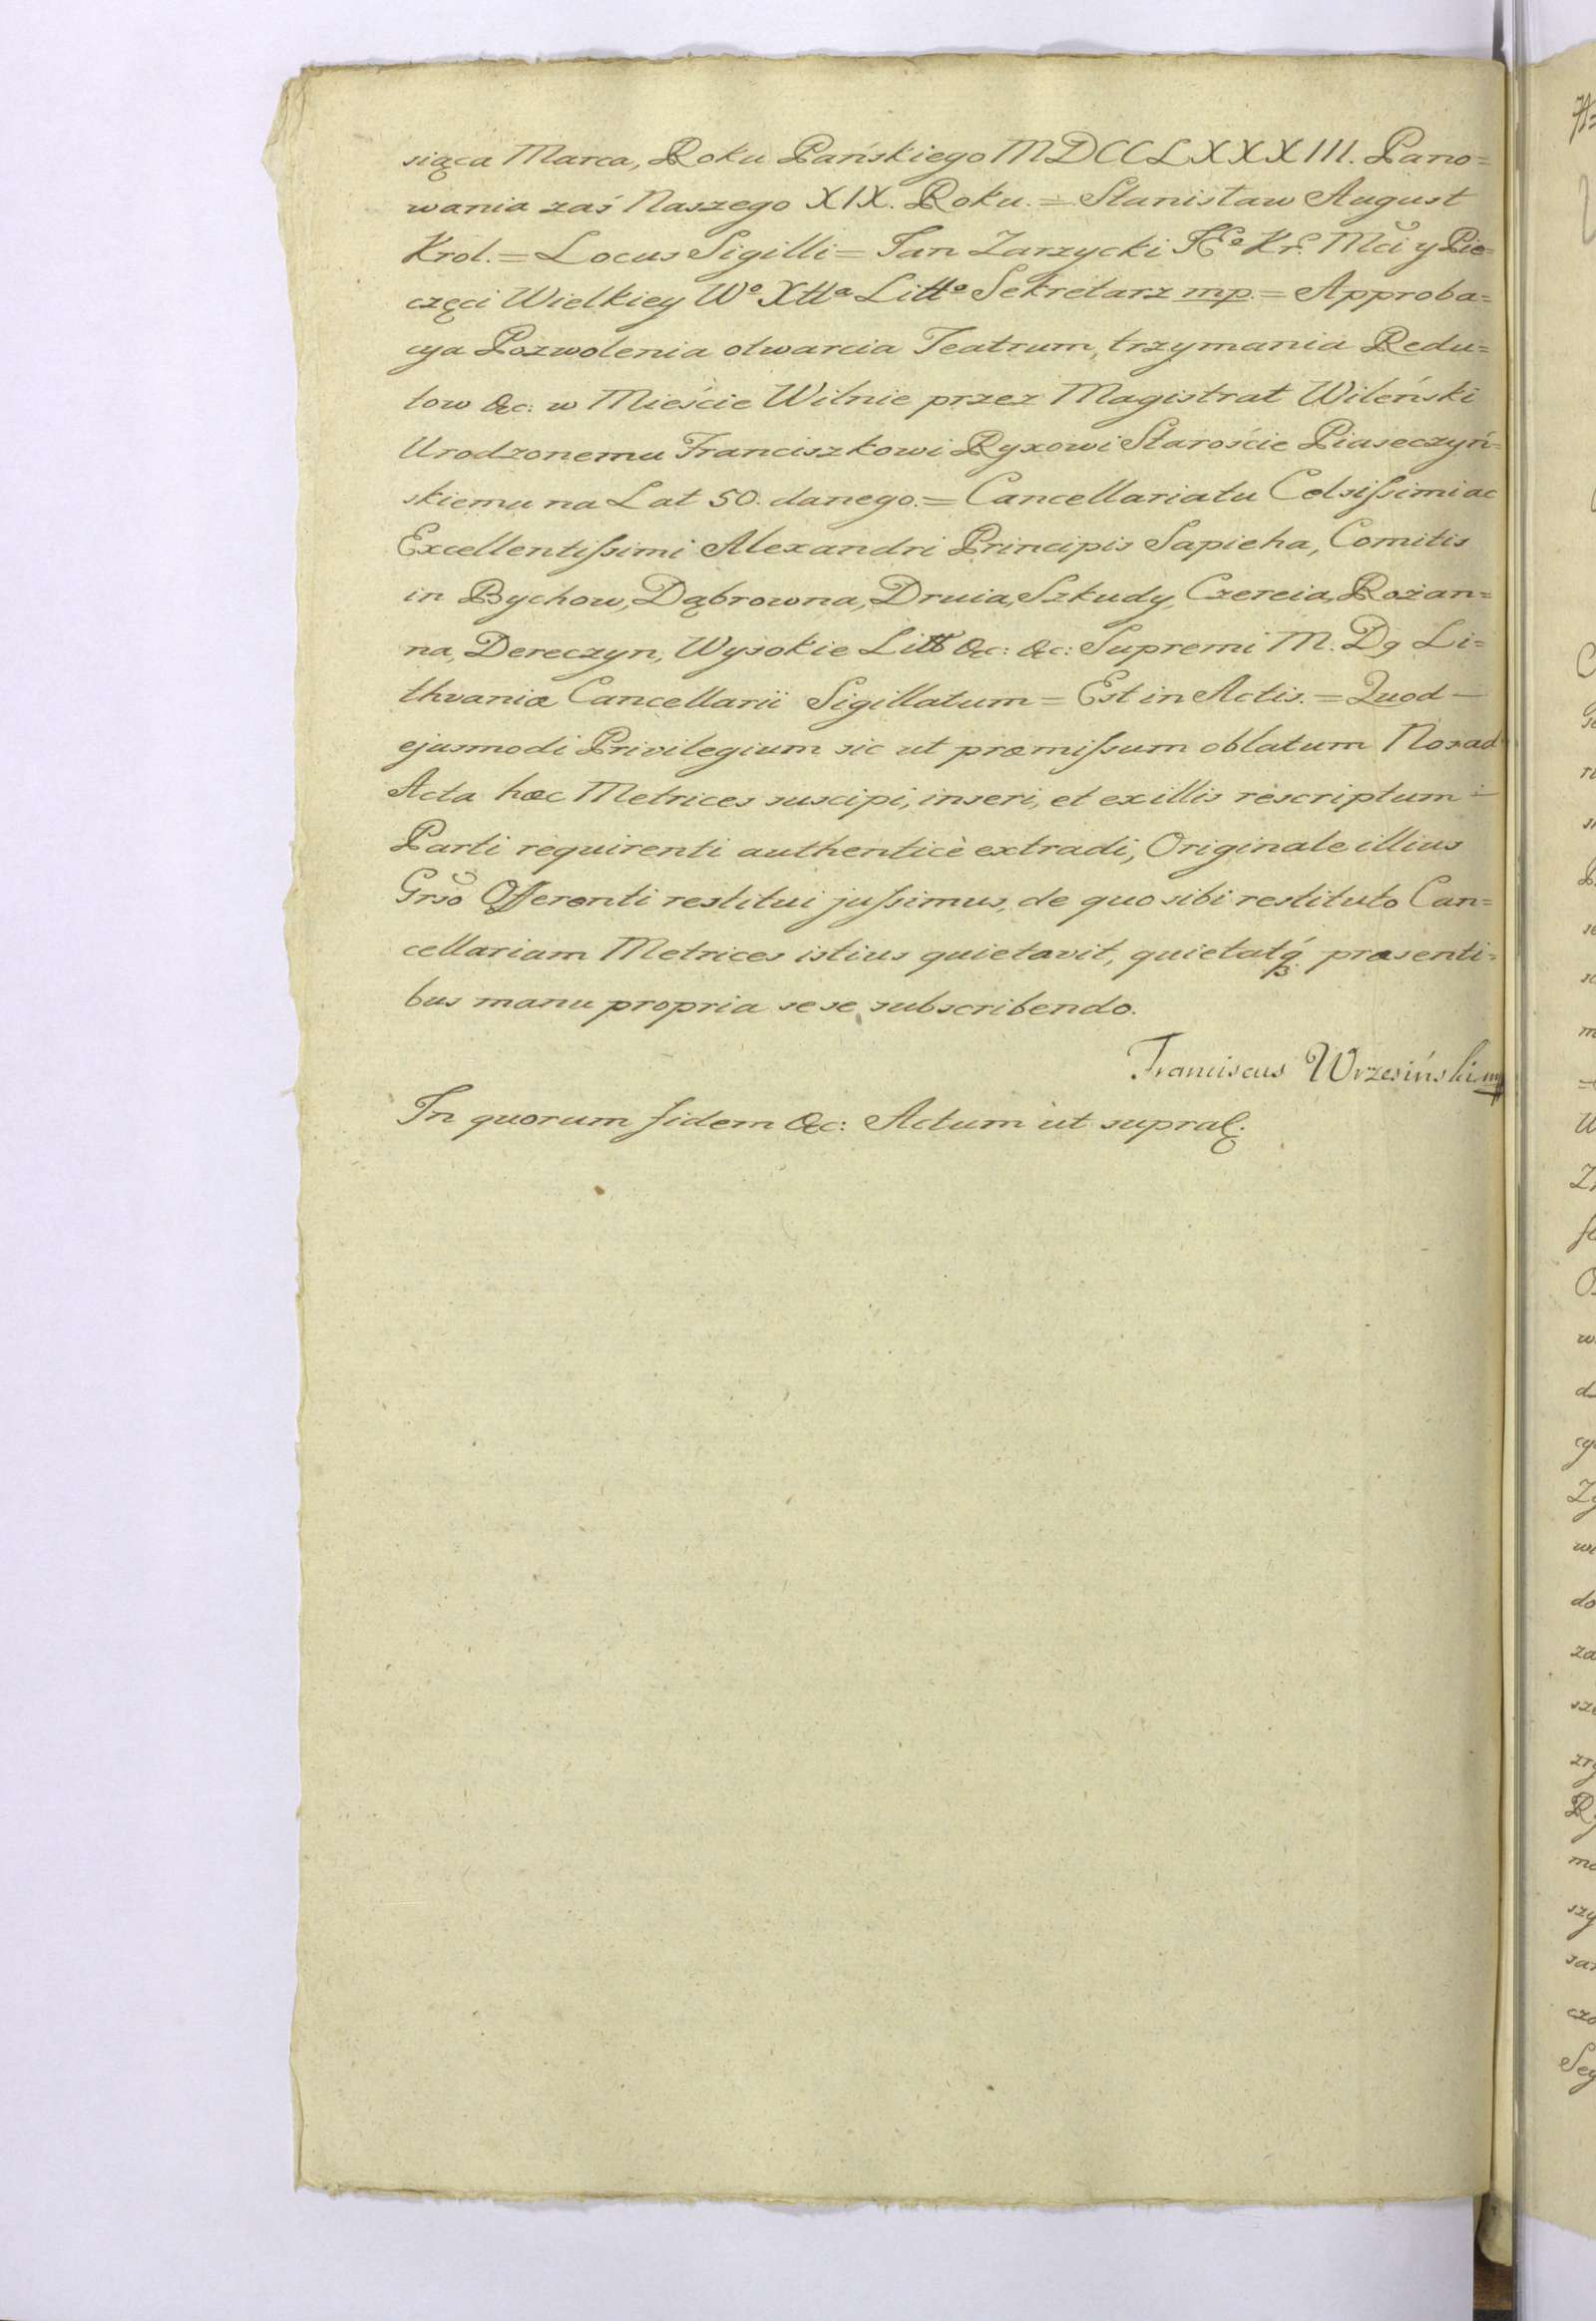 siąca Marca, Roku Pańskiego MDCCLXXXIII. Pano=
wania zaś Naszego XIX. Roku. = Stanisław August
Krol. = Locus Sigilli = Jan Zarzycki Kr. Mci y Pie=
częci Wielkiey Wo Xtta Litto Sekretarz mp. = Approba=
cya Pozwolenia otwarcia Teatrum, trzymania Redu=
tow &c: w Mieście Wilnie przez Magistrat Wileński
Urodzonemu Franciszkowi Ryxowi Staroście Piaseczyń=
skiemu na Lat 50. danego. = Cancellariatu Celsissimi ac
Excellentissimi Alexandri Principis Sapieha, Comitis
in Bychow, Dąbrowna, Druia, Szkudy, Czereia, Rożan=
na, Dereczyn, Wysokie Litt &c: &c: Supremi M. D. Li=
thvaniæ Cancellarii Sigillatum = Est in Actis. = Quod
ejusmodi Privilegium sic ut præmissum oblatum Nos ad
Acta hæc Metrices suscipi, inseri, et ex illis rescriptum
Parti requirenti authenticè extradi, Originale illius
Grso Offerenti restitui jussimus, de quo sibi restituto Can=
cellariam Metrices istius quietavit, quietatq́ præsenti=
bus manu propria sese subscribendo.
Franciscus Wrzesiński mp
In quorum fidem &c: Actum ut supra.